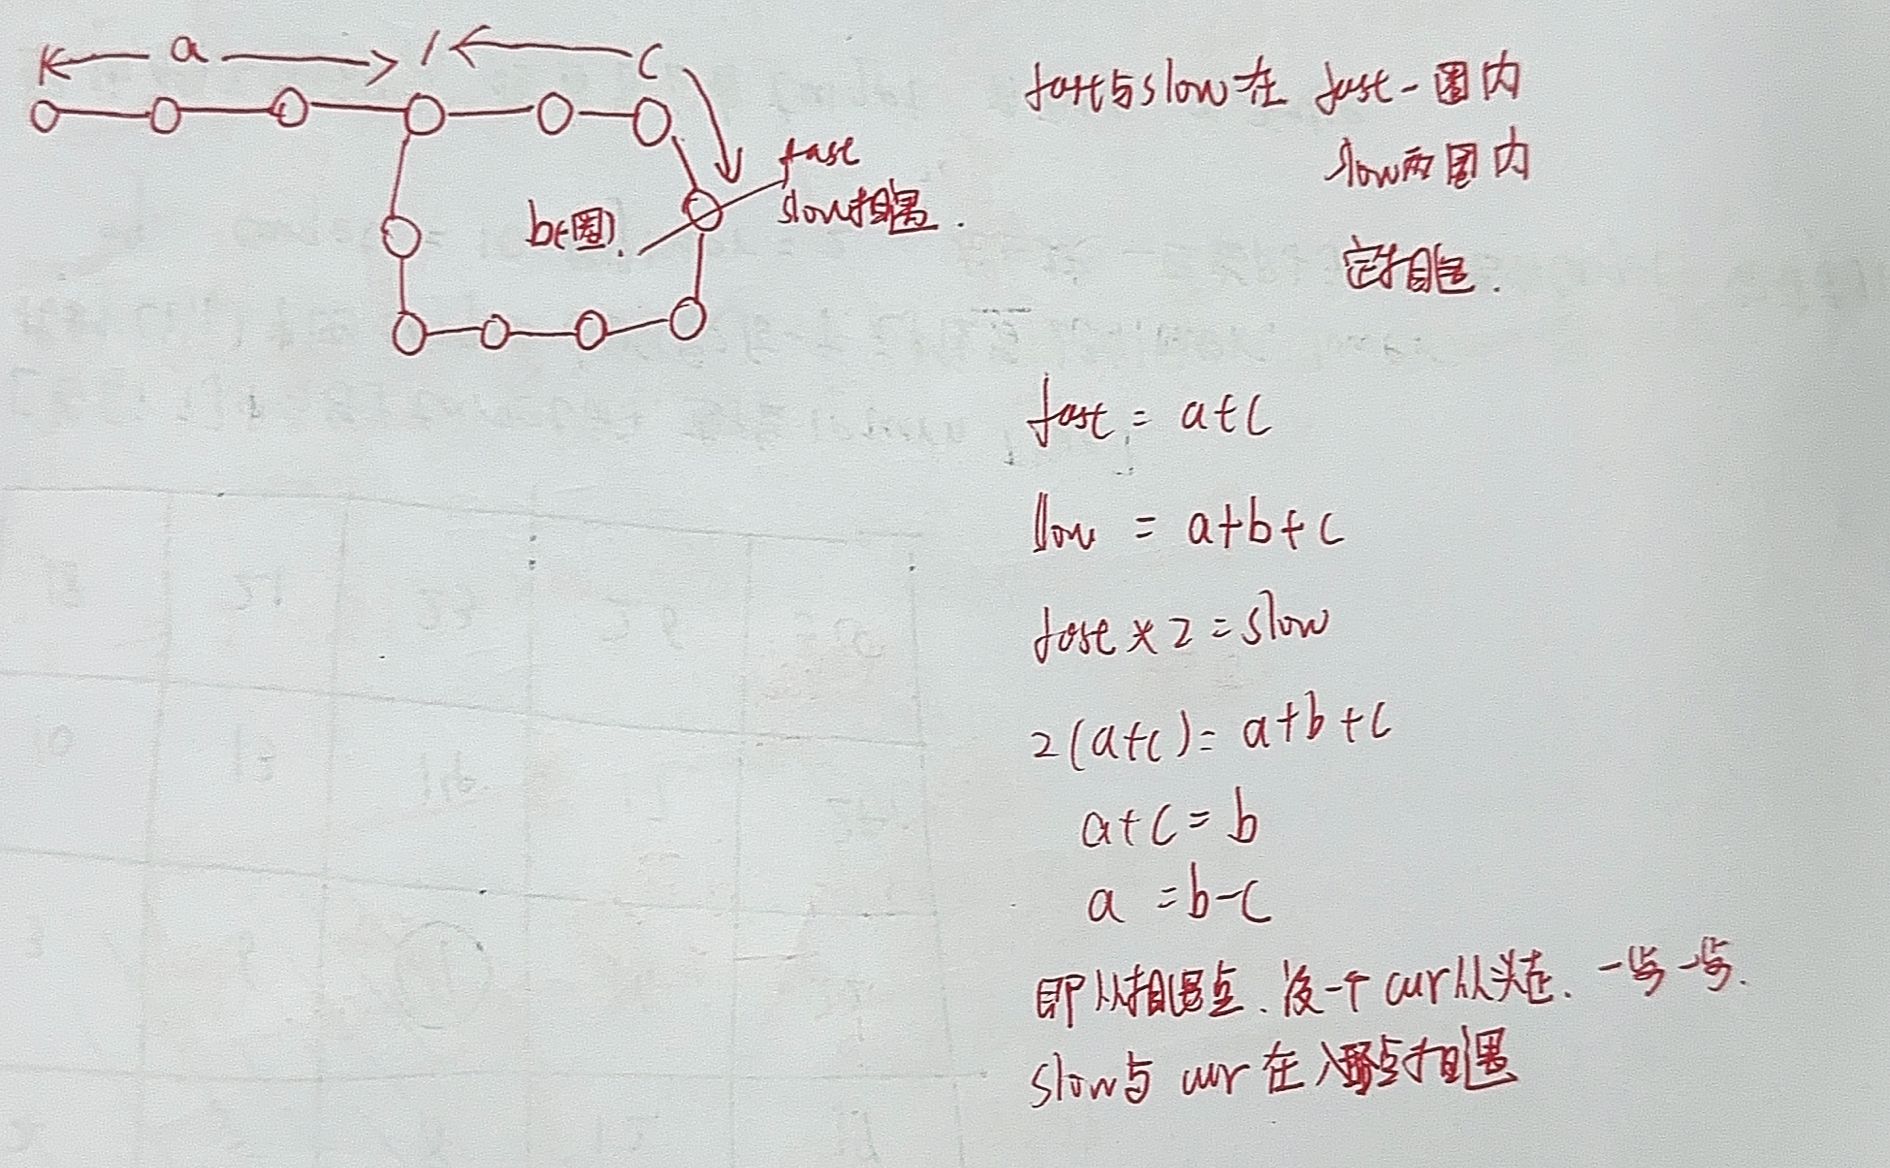 a
c
fast
slow相遇.
b(圈).
fast与slow在 fast一圈内
slow两圈内
定相遇.
fast = a+c
slow = a+b+c
fast × 2 = slow
2(a+c) = a+b+c
a+c = b
a = b-c
即从相遇点、设一个cur从头走、一步一步.
slow与cur在入环点相遇